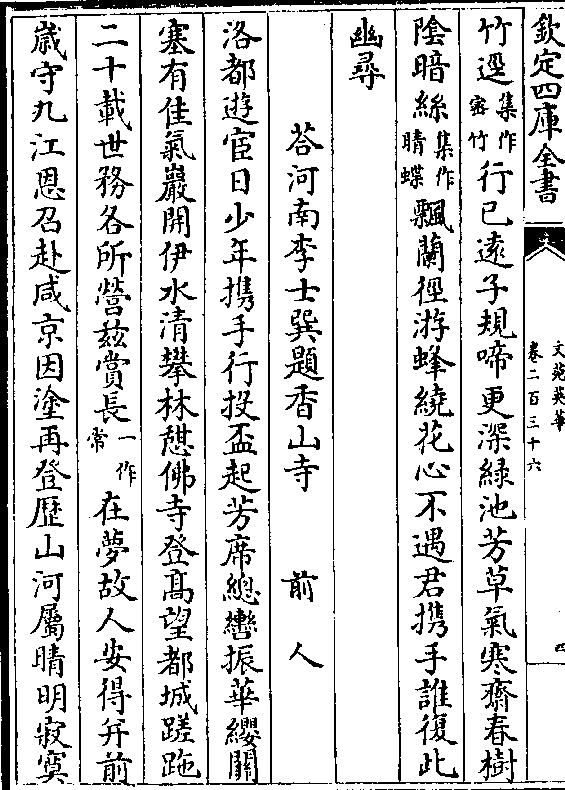 欽定四庫全書
文苑英華
卷二百三十六
四
竹逕集作密竹行已遠子規啼更深緑池芳草氣寒齋春樹
陰暗絲集作晴蝶飄蘭徑游蜂繞花心不遇君携手誰復此
幽尋
荅河南李士㢲題香山寺 前人
洛都遊宦日少年携手行投盃起芳席總轡振華纓關
塞有佳氣巖開伊水清攀林憇佛寺登高望都城蹉跎
二十載世務各所營兹賞長一作常在夢故人安得并前
歳守九江恩召赴咸京因塗再登歴山河屬晴明寂寞